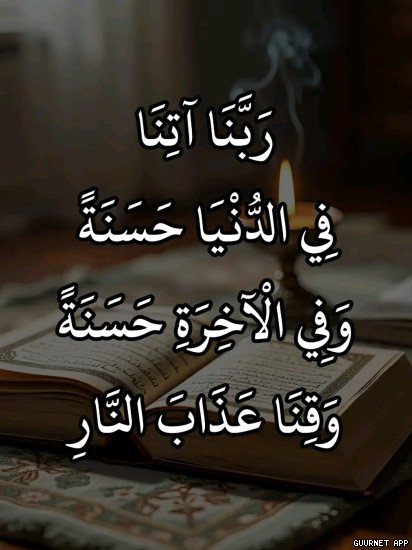 رَبَّنَا آتِنَا
فِي الدُّنْيَا حَسَنَةً
وَفِي الْآخِرَةِ حَسَنَةً
وَقِنَا عَذَابَ النَّارِ
GUURNET APP